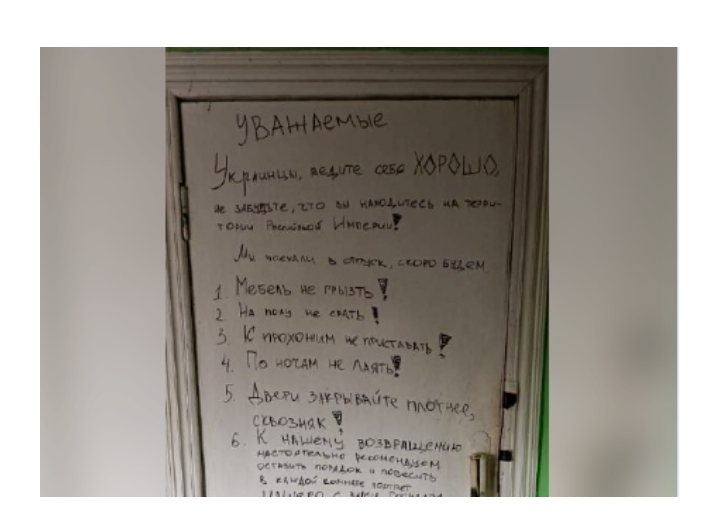 УВАЖАЕМЫЕ
Украинцы, ведите себя ХОРОШО,
не забудьте, что вы находитесь на терри-
тории Российской Империи!
Мы поехали в отпуск, скоро будем.
1. Мебель не грызть!
2. На полу не срать!
3. К прохожим не приставать!
4. По ночам не лаять!
5. Двери закрывайте плотнее,
сквозняк!
6. К нашему возвращению
настоятельно рекомендуем
оставить порядок и повесить
в каждой комнате портрет